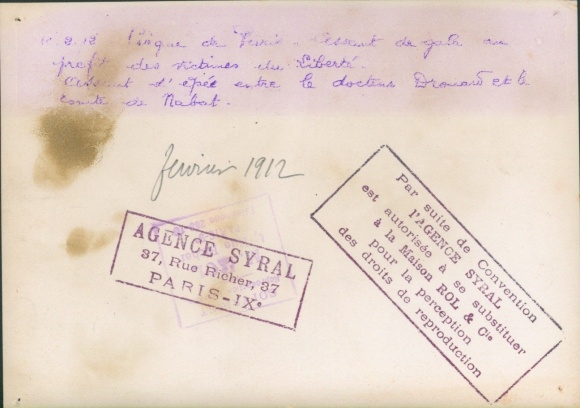 Cirque de Paris - Assaut de gala au
profit des victimes du Liberté.
Assaut d'épée entre le docteur Drouard et le
comte de Rabat.
février 1912
AGENCE SYRAL
37, Rue Richer, 37
PARIS-IXe
Par suite de Convention
l'AGENCE SYRAL
est autorisée à se substituer
à la Maison ROL & Cie
pour la perception
des droits de reproduction